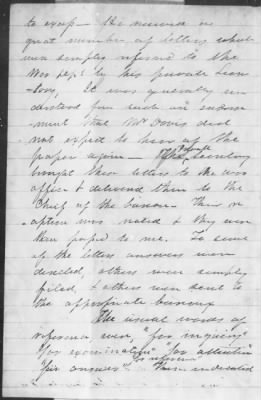 to except — He received a
great number of letters which
were simply referred to the
War Dept by his private Secre-
tary, It was generally un-
derstood from such an indorse-
ment that Mr Davis did
not expect to hear of the
paper again — The Private Secretary
brought these letters to the war
office & delivered them to the
Chief of the bureau — Then
was noted & they were
then passed to me. To some
of the letters answers were
directed, others were simply
filed, & others were sent to
the appropriate bureaux
The usual words of
reference were, "for inquiry"
"for examination" "for attention"
"for answer" "for reference" These indicated